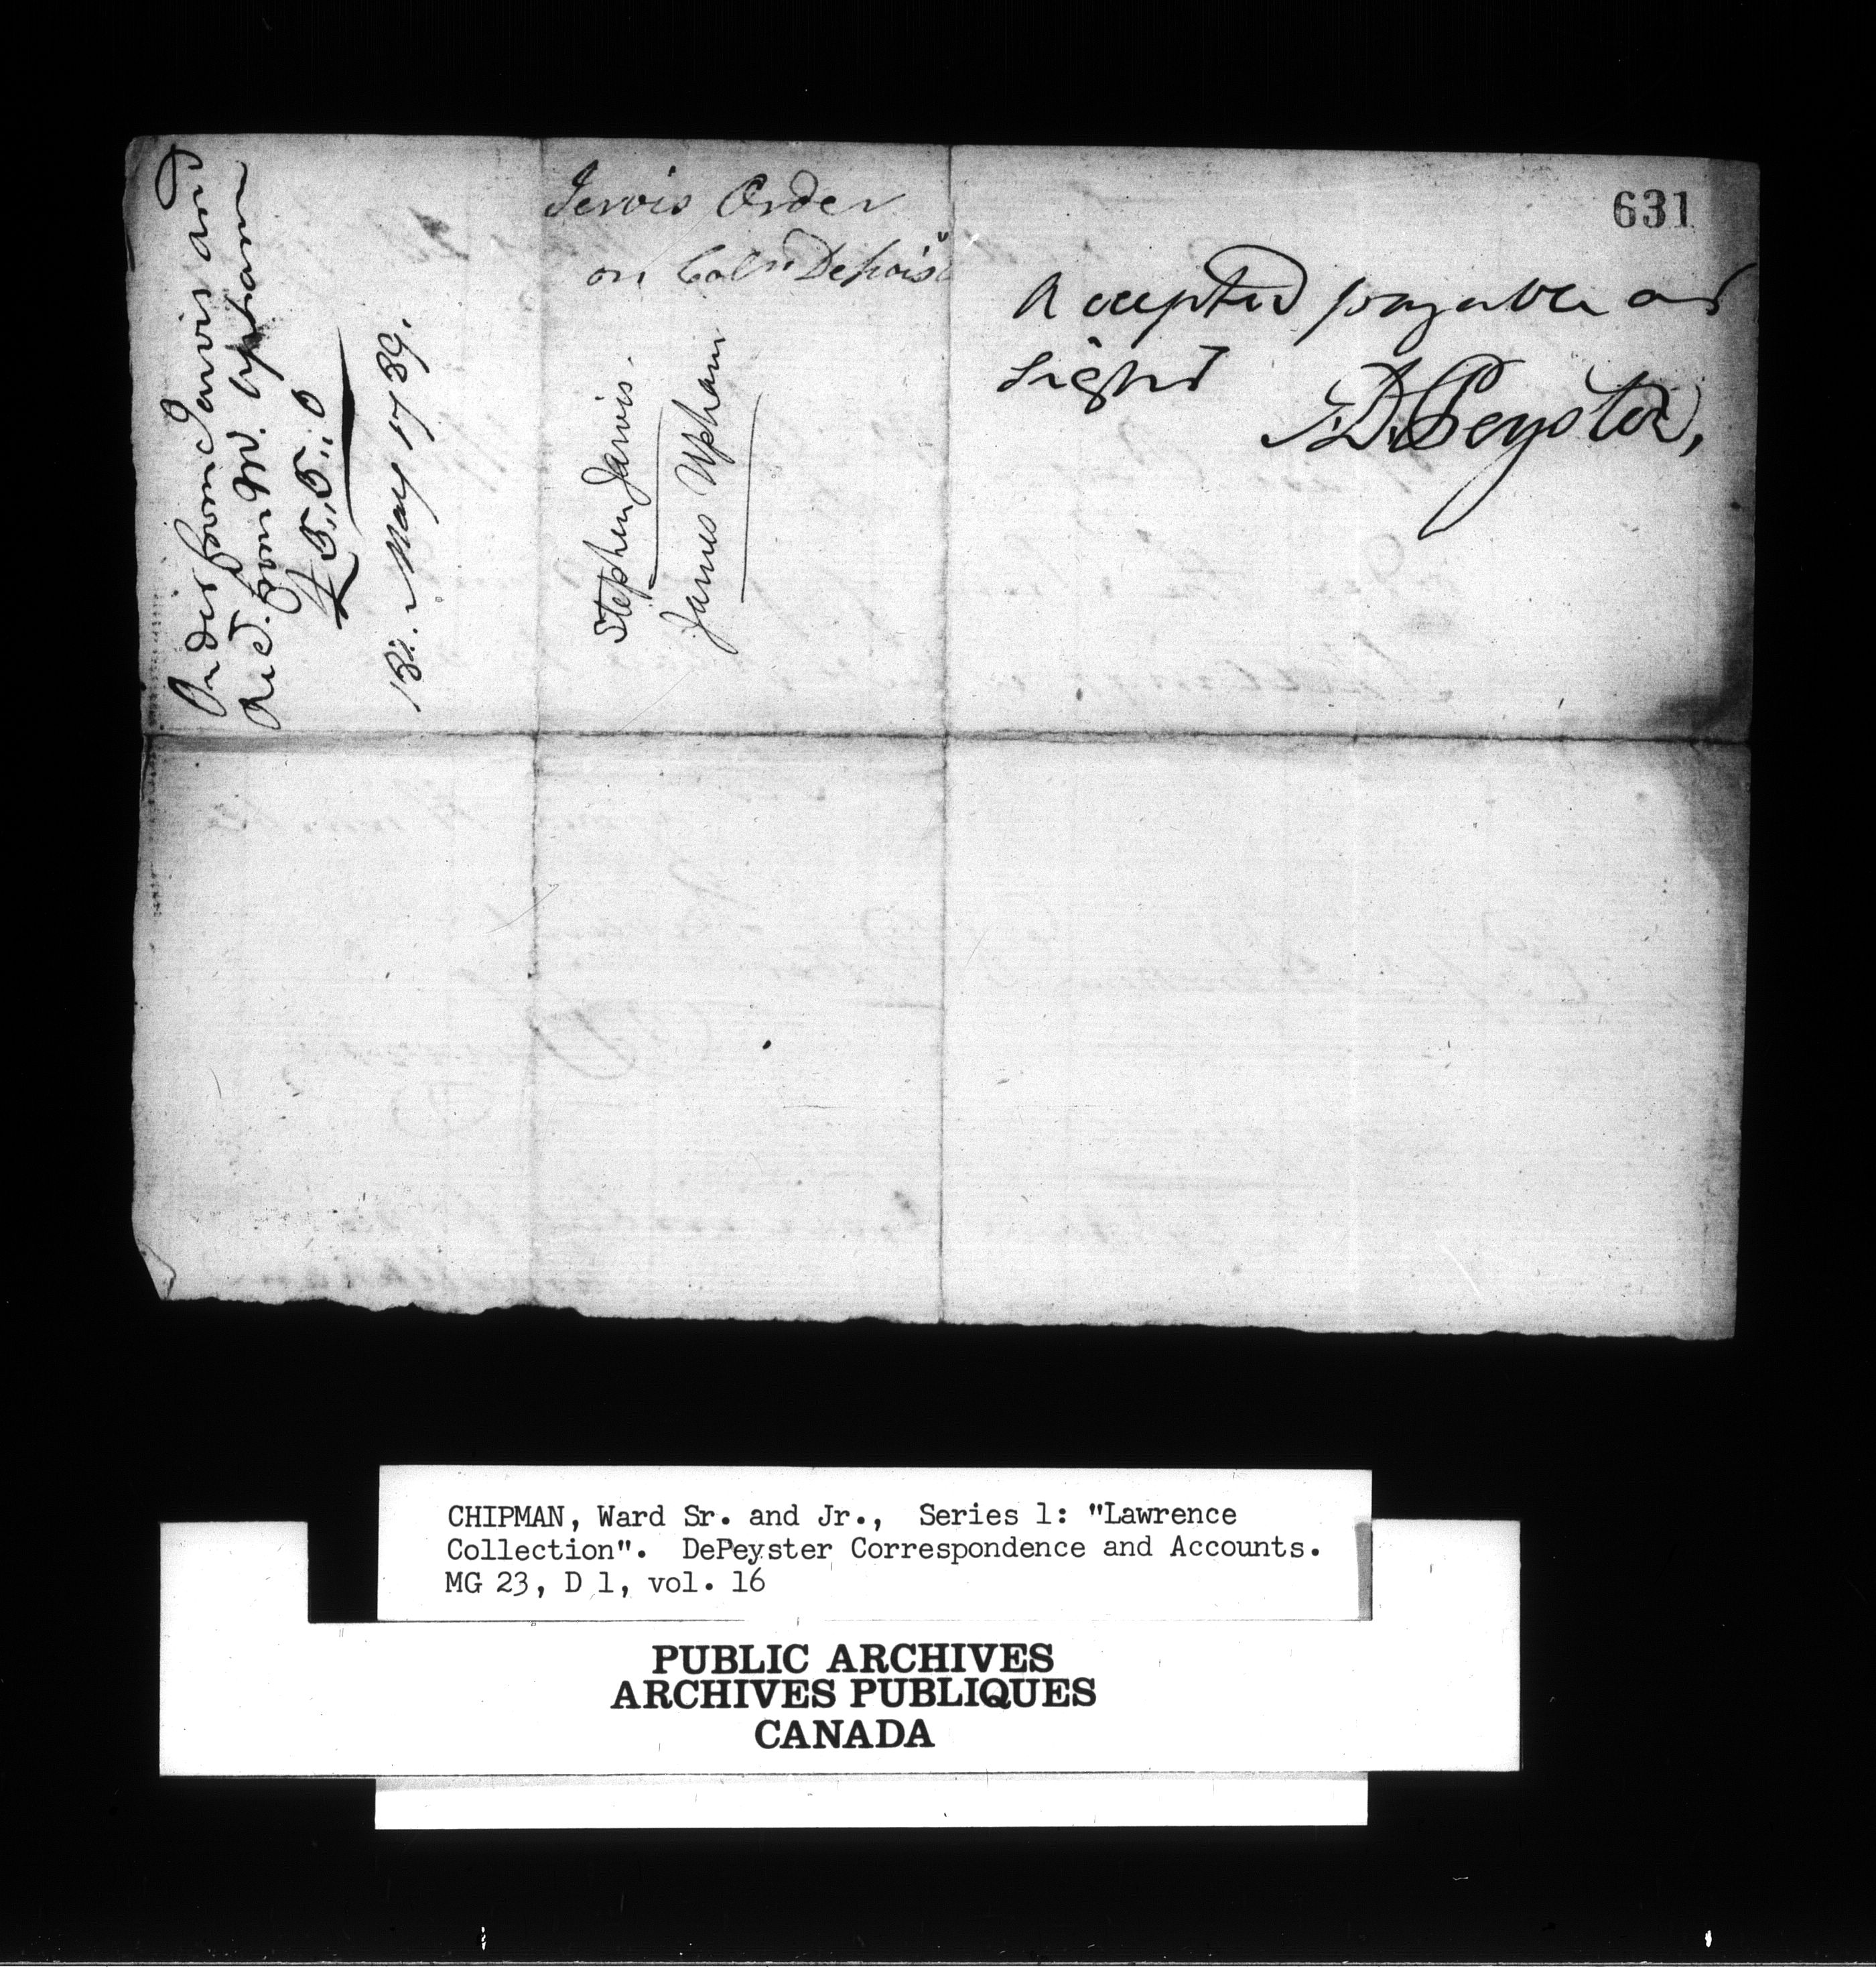 631
Order from Jarvis and
Rect. from Mr. Upham
£5..5..0
13t. May 1789.
Jervis Order
on Coln. Depois
Stephen Jarvis.
James Upham
Accepted payable at
sight
A. D. Peyster,
CHIPMAN, Ward Sr. and Jr., Series 1: "Lawrence
Collection". DePeyster Correspondence and Accounts.
MG 23, D 1, vol. 16
PUBLIC ARCHIVES
ARCHIVES PUBLIQUES
CANADA